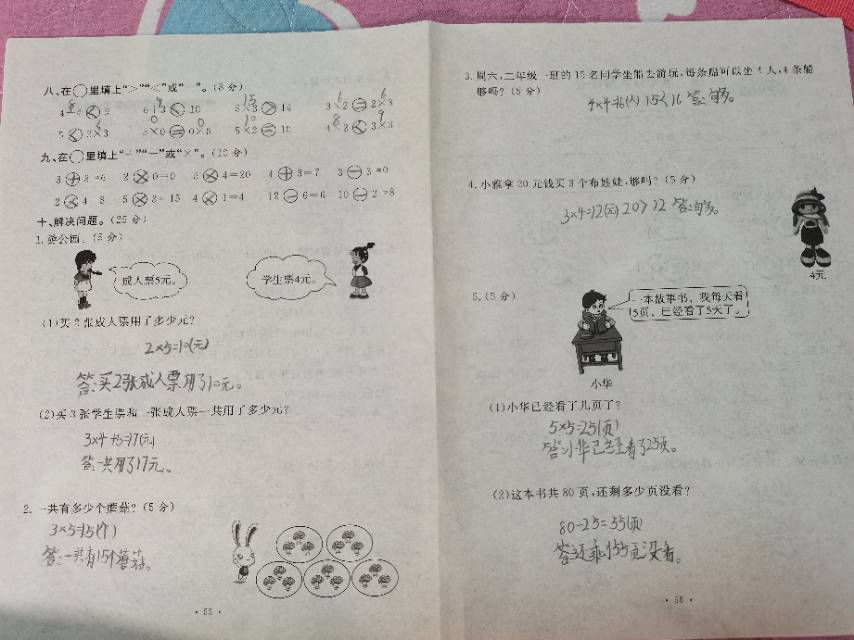 八、在○里填上“>”“<”或“=”。(8分)
九、在○里填上“+”“-”或“×”。(10分)
3 + 3 = 6 2 × 0 = 0 5 × 4 = 20 4 + 3 = 7 3 - 3 = 0
2 × 4 = 8 5 × 3 = 15 4 × 1 = 4 12 - 6 = 6 10 - 2 = 8
十、解决问题。(25分)
1. 游公园。(5分)
成人票5元。
学生票4元。
(1)买2张成人票用了多少元?
2×5=10(元)
答:买2张成人票用了10元。
(2)买3张学生票和一张成人票一共用了多少元?
3×4+5=17(元)
答:一共用了17元。
2. 一共有多少个蘑菇?(5分)
3×5=15(个)
答:一共有15个蘑菇。
· 55 ·
3. 周六,二年级一班的15名同学坐船去游玩,每条船可以坐4人,4条船
够吗?(5分)
4×4=16(人) 15<16 答:够。
4. 小雅拿20元钱买3个布娃娃,够吗?(5分)
3×4=12(元) 20>12 答:够。
4元
5. (5分)
一本故事书,我每天看
15页,已经看了5天了。
小华
(1)小华已经看了几页了?
5×5=25(页)
答:小华已经看了25页。
(2)这本书共80页,还剩多少页没看?
80-25=55(页)
答:还乘55页没看。
· 56 ·